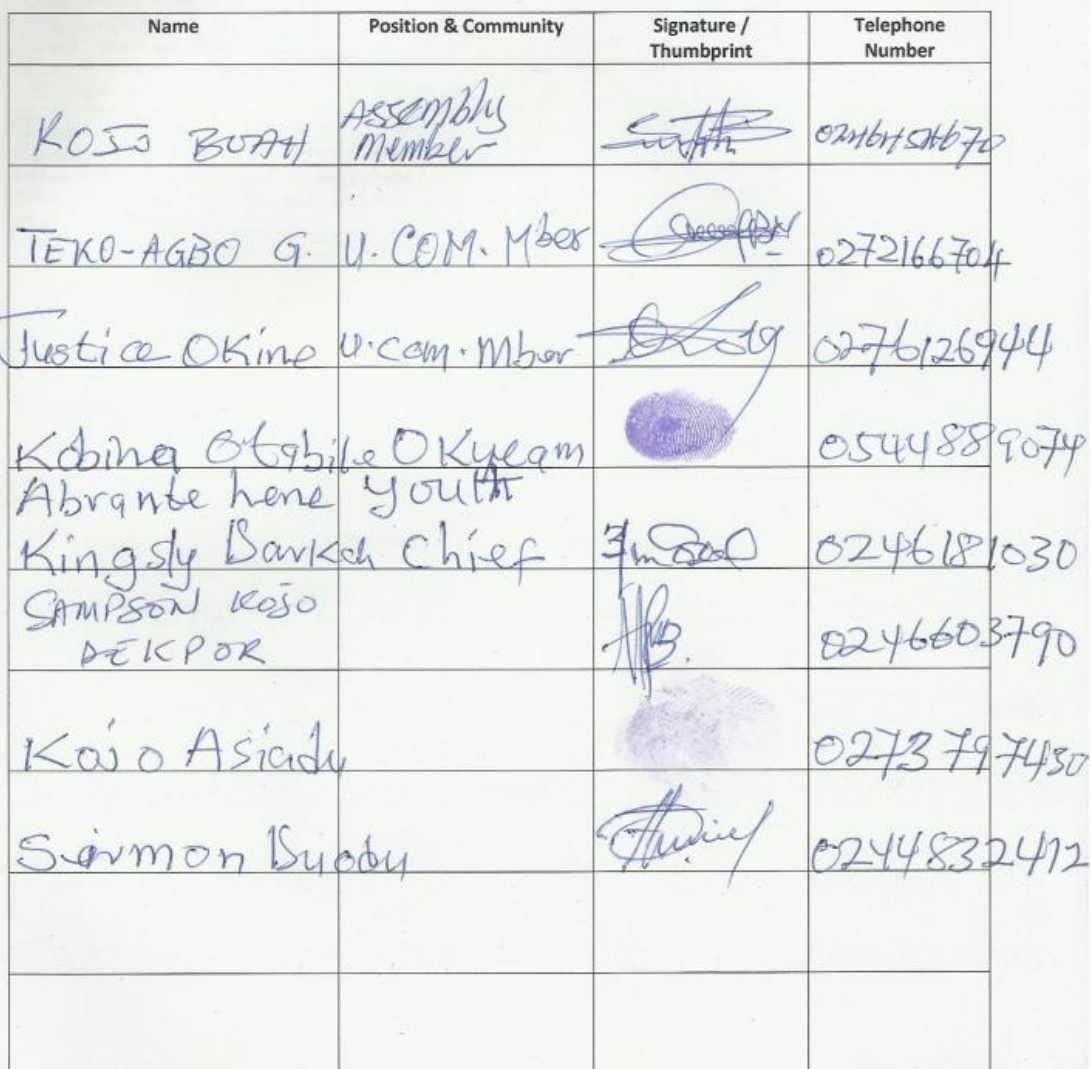 Name Position & Community Signature / Thumbprint Telephone Number
KOJO BUAH Assembly Member
TEKO-AGBO G. U. COM. Mber 0272166704
Justice OKine U.com.Mber 0276126944
Kobina Otabile OKyeam 0544889074
Abrante hene youth
Kingsly Barkah Chief 0246181030
SAMPSON KOJO
DEKPOR 0246603790
Kojo Asiadu 0273797430
0244832412